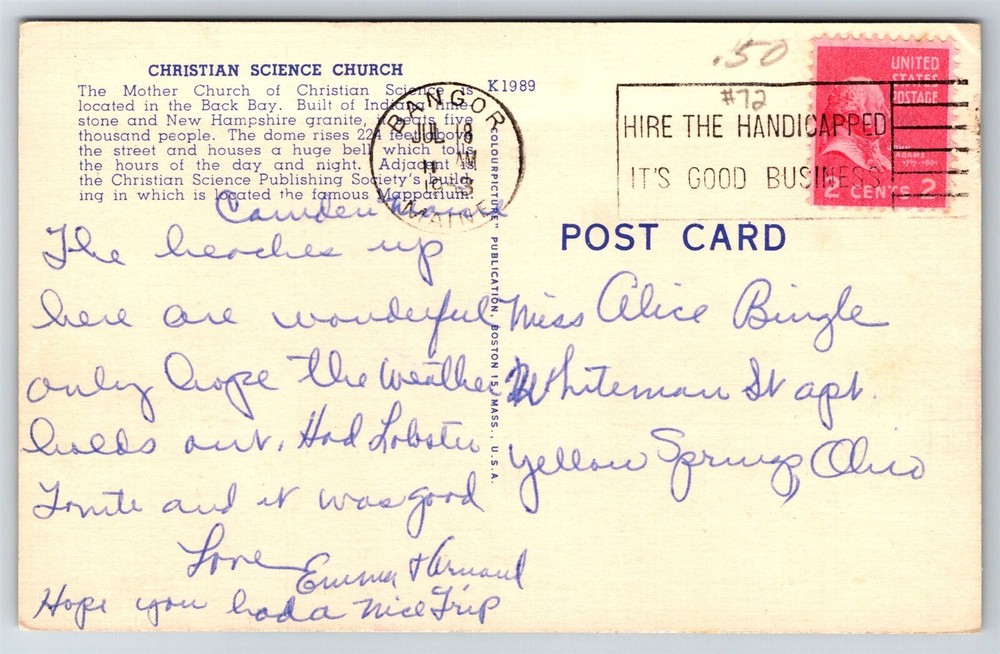 CHRISTIAN SCIENCE CHURCH
The Mother Church of Christian Science is
located in the Back Bay. Built of Indiana lime-
stone and New Hampshire granite, it seats five
thousand people. The dome rises 224 feet above
the street and houses a huge bell which tolls
the hours of the day and night. Adjacent is
the Christian Science Publishing Society's build-
ing in which is located the famous Mapparium.
K1989
COLOURPICTURE" PUBLICATION, BOSTON 15, MASS., U.S.A.
BANGOR
JUL 8
11 AM
MAINE
.50
#72
HIRE THE HANDICAPPED
IT'S GOOD BUSINESS
UNITED
STATES
POSTAGE
JOHN
ADAMS
1797-1801
2 CENTS 2
POST CARD
Camden Maine
The beaches up
here are wonderful
only hope the weather
holds out. Had Lobster
Tonite and it was good
Love
Emma & Armand
Hope you had a nice Trip
Miss Alice Bingle
Whiteman St apt.
Yellow Springs, Ohio